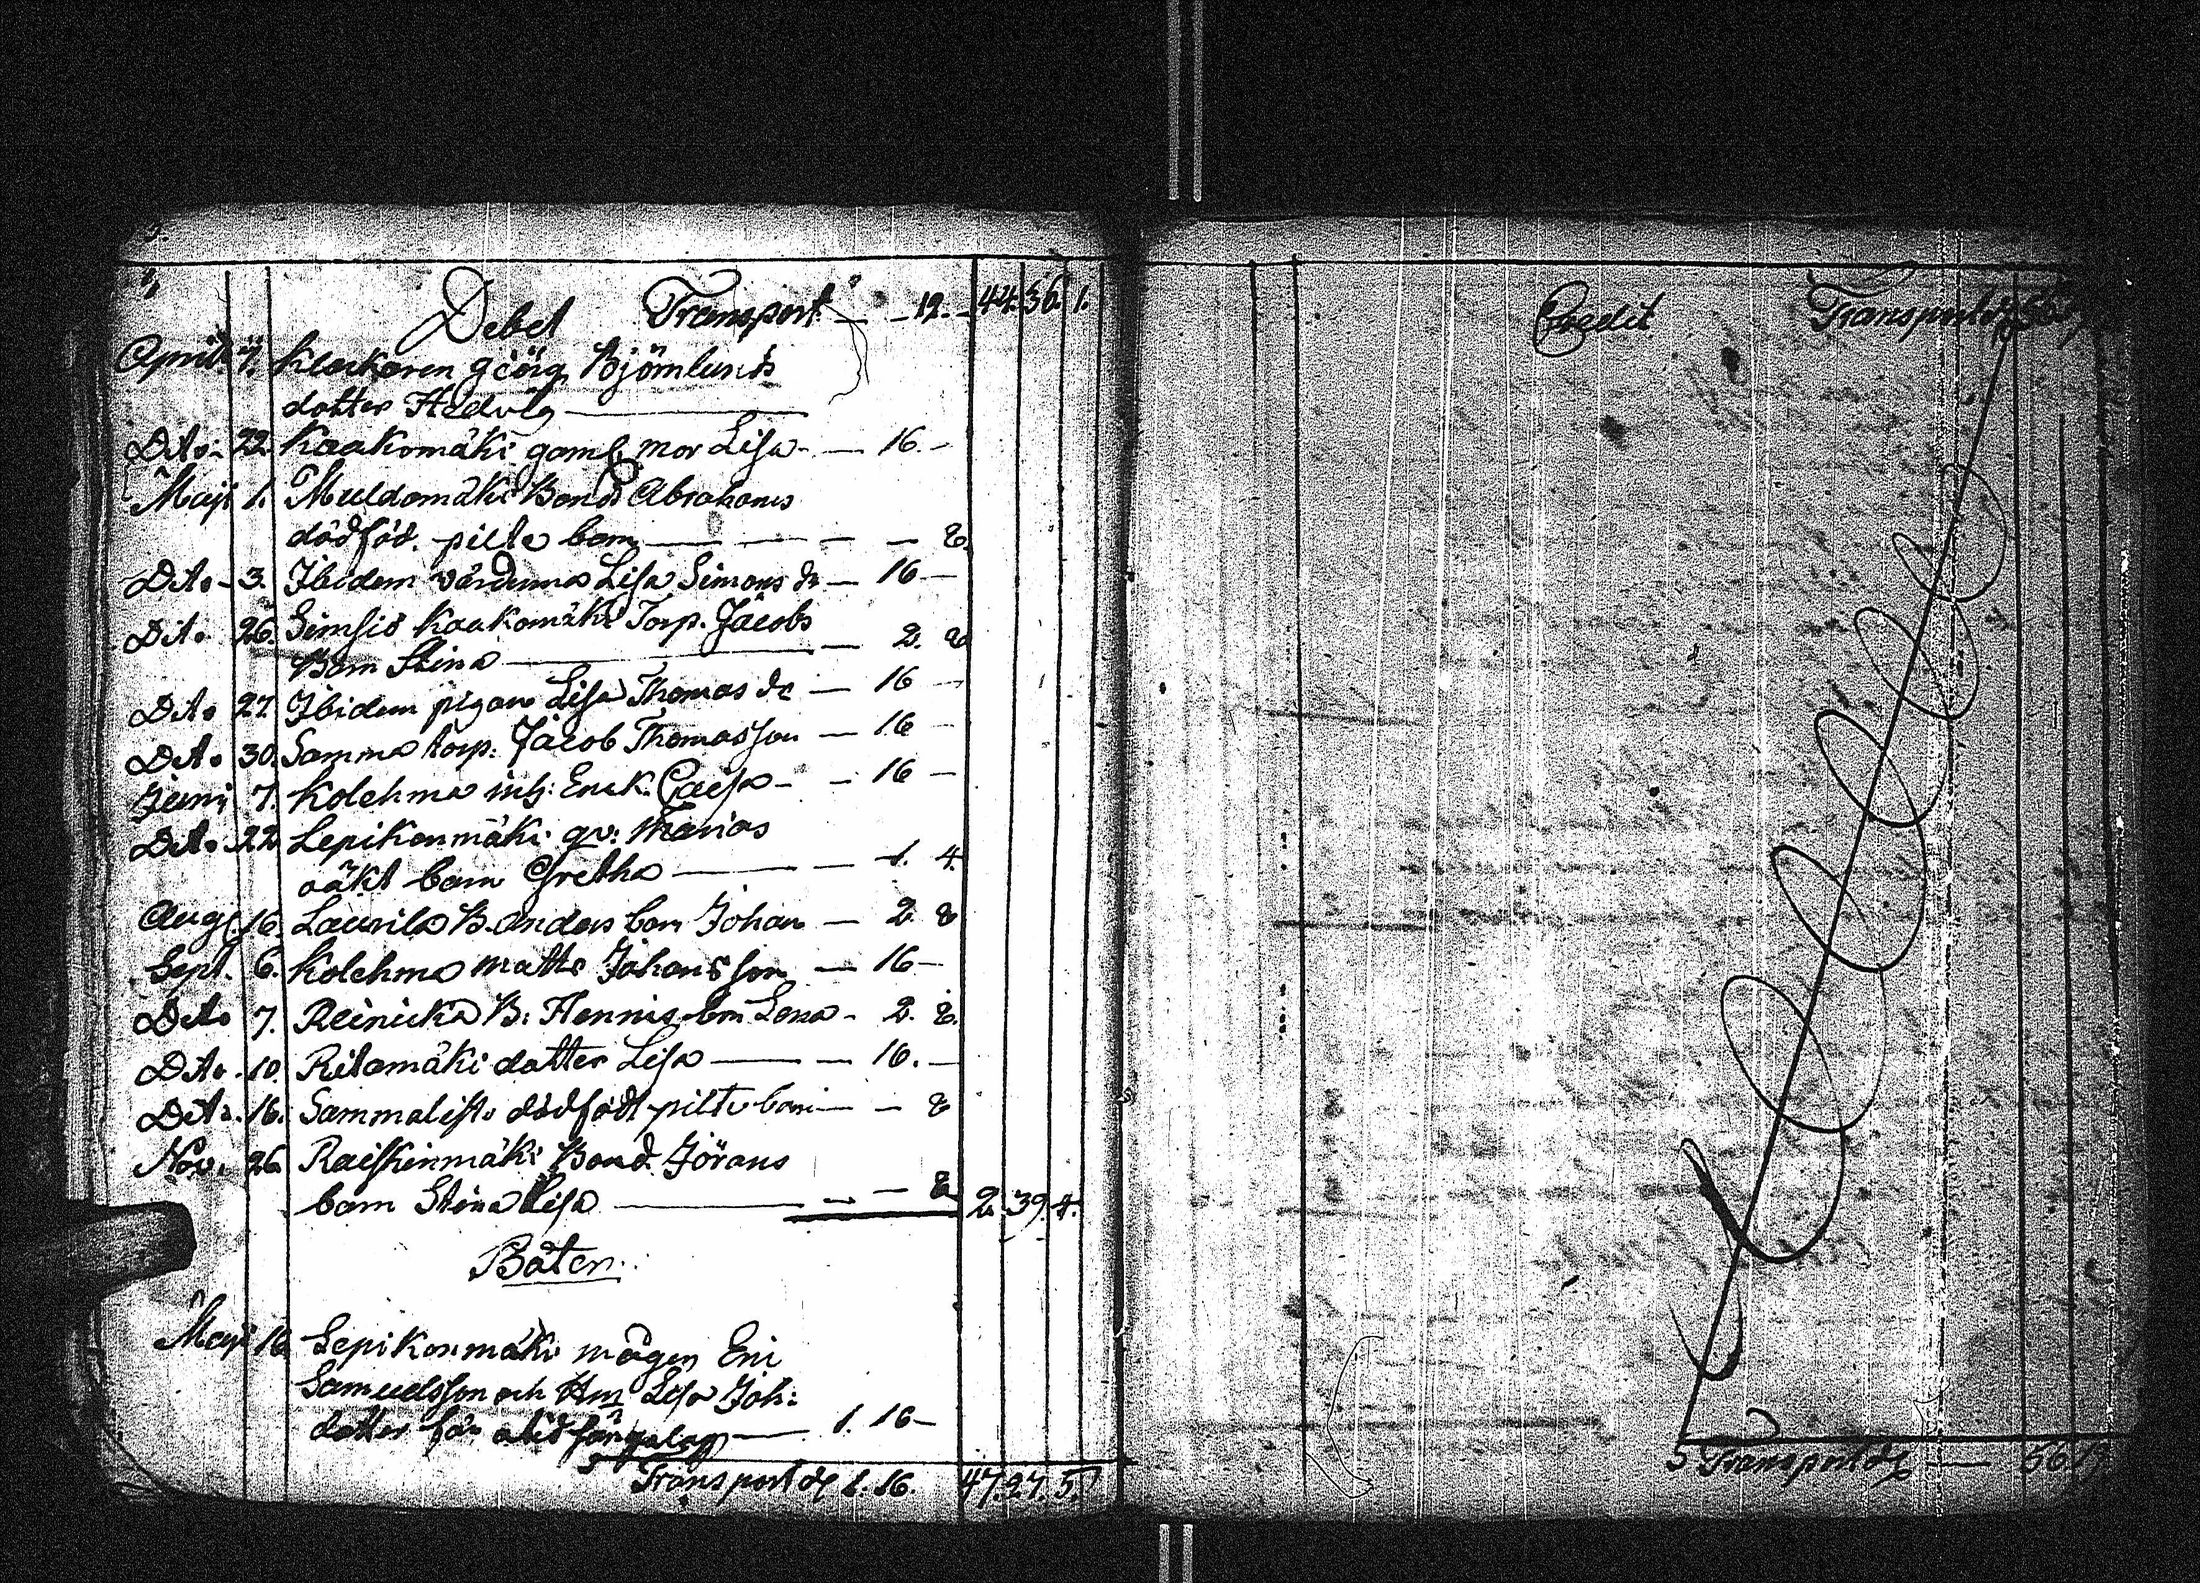 Debet Transport — 12. 44. 36. 1.
April. 7. Klockaren Giörg Björnlunds
dotter Hedvig
Dito 22. Kaakomäki gaml. mor Lisa — 16. —
Maji 1. Muldomäki Bond Abrahams
dödföd. pilte barn — — — 8.
Dito 3. Ibidem värdinna Lisa Simons dr — 16 —
Dito 26. Simsiö Kaakomäki Torp. Jacobs
Barn Stina — 2. 8
Dito 27. Ibidem pigan Lisa Thomas dr — 16 —
Dito 30. Samma torp. Jacob Thomasson — 16 —
Juni 7. Kolehma inh: Erick Caisa — 16 —
Dito 22. Lepikonmäki qv: Marias
oäkt barn Gretha — 1. 4.
Aug. 16. Laurila B. Anders barn Johan — 2. 8
Sept. 6. Kolehma Matts Johansson — 16 —
Dito 7. Reinicka B. Hennis barn Lena — 2. 8.
Dito 10. Ritamäki dotter Lisa — 16. —
Dito 16. Sammalisto dödfödt pilte barn — — 8
Nov. 26. Raiskinmäki Bond. Jörans
barn Stina Lisa — — 8 2. 39. 4.
Böter.
Maji 16. Lepikonmäki mågen Eric
Samuelsson och Hu Lisa Joh:
dotter för otid 1. 16 —
Transport dr 1. 16. 47. 27. 5.
Credit Transport
Transport dr — 56